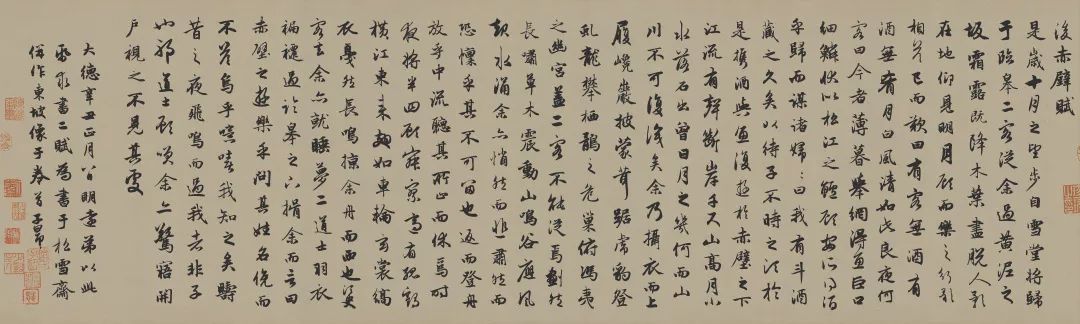 後赤壁賦
是歲十月之望步自雪堂將歸
于臨皋二客從余過黃泥之
坂霜露既降木葉盡脫人影
在地仰見明月顧而樂之行歌
相答已而歎曰有客無酒有
酒無肴月白風清如此良夜何
客曰今者薄暮舉網得魚巨口
細鱗狀似松江之鱸顧安所得酒
乎歸而謀諸婦婦曰我有斗酒
藏之久矣以待子不時之須於
是攜酒與魚復遊於赤壁之下
江流有聲斷岸千尺山高月小
水落石出曾日月之幾何而山
川不可復識矣余乃攝衣而上
履巉巖披蒙茸踞虎豹登
虬龍攀栖鶻之危巢俯馮夷
之幽宮蓋二客不能從焉劃然
長嘯草木震動山鳴谷應風
起水涌余亦悄然而悲肅然而
恐凜乎其不可留也返而登舟
放乎中流聽其所止而休焉時
夜將半四顧寂寥適有孤鶴
橫江東來翅如車輪玄裳縞
衣戛然長鳴掠余舟而西也須臾
客去余亦就睡夢二道士羽衣
蹁躚過臨皋之下揖余而言曰
赤壁之遊樂乎問其姓名俛而
不答嗚呼噫嘻我知之矣疇
昔之夜飛鳴而過我者非子
也耶道士顧笑余亦驚寤開
戶視之不見其處
大德辛丑正月八日明遠弟以此
紙求書二賦為書于松雪齋
併作東坡像于卷首子昂